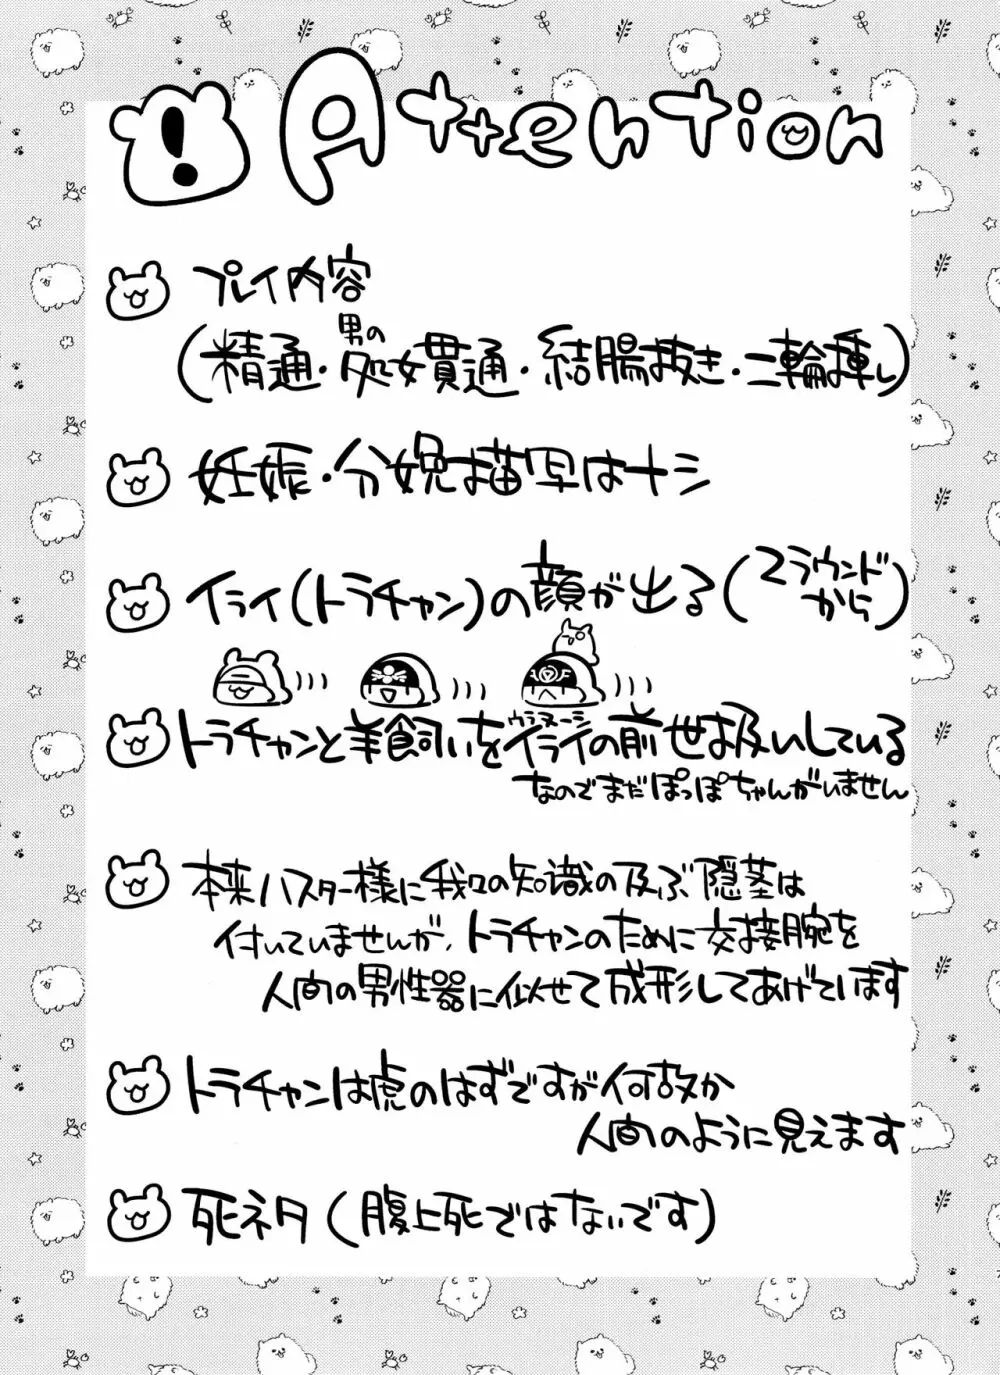 Attention
プレイ内容
(精通・男の処女貫通・結腸抜き・二輪挿し)
妊娠・分娩描写はナシ
イライ(トラチャン)の顔が出る(2ラウンドから)
トラチャンと羊飼いをイライの前世扱いしている
なのでまだぽっぽちゃんがいません
本来ハスター様に我々の知識の及ぶ陰茎は
付いていませんが、トラチャンのために交接腕を
人間の男性器に似せて成形してあげています
トラチャンは虎のはずですが何故か
人間のように見えます
死ネタ(腹上死ではないです)